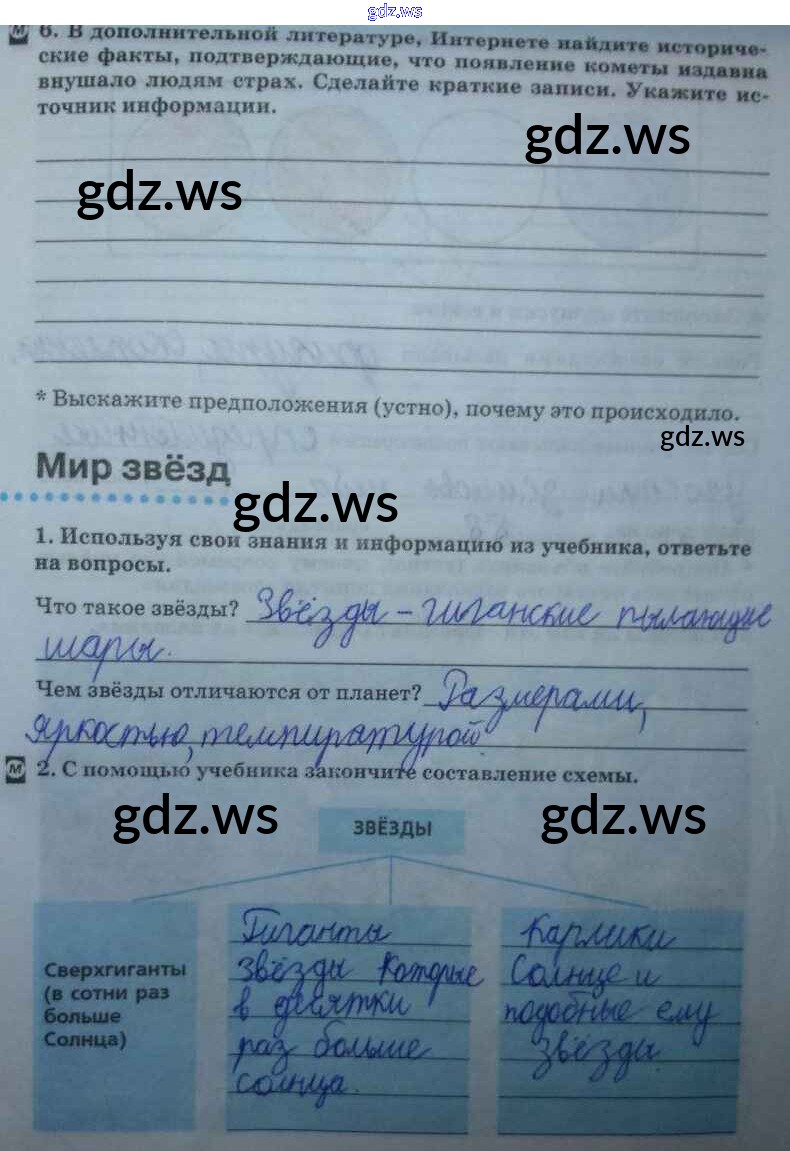 gdz.ws
М 6. В дополнительной литературе, Интернете найдите историче-
ские факты, подтверждающие, что появление кометы издавна
внушало людям страх. Сделайте краткие записи. Укажите ис-
точник информации.
gdz.ws
gdz.ws
* Выскажите предположения (устно), почему это происходило.
gdz.ws
Мир звёзд
gdz.ws
1. Используя свои знания и информацию из учебника, ответьте
на вопросы.
Что такое звёзды? Звёзды – гиганские пылающие
шары.
Чем звёзды отличаются от планет? Размерами,
яркостью, температурой
М 2. С помощью учебника закончите составление схемы.
gdz.ws
gdz.ws
ЗВЁЗДЫ
Сверхгиганты
(в сотни раз
больше
Солнца)
Гиганты
звёзды которые
в десятки
раз больше
солнца.
Карлики
Солнце и
подобные ему
звёзды